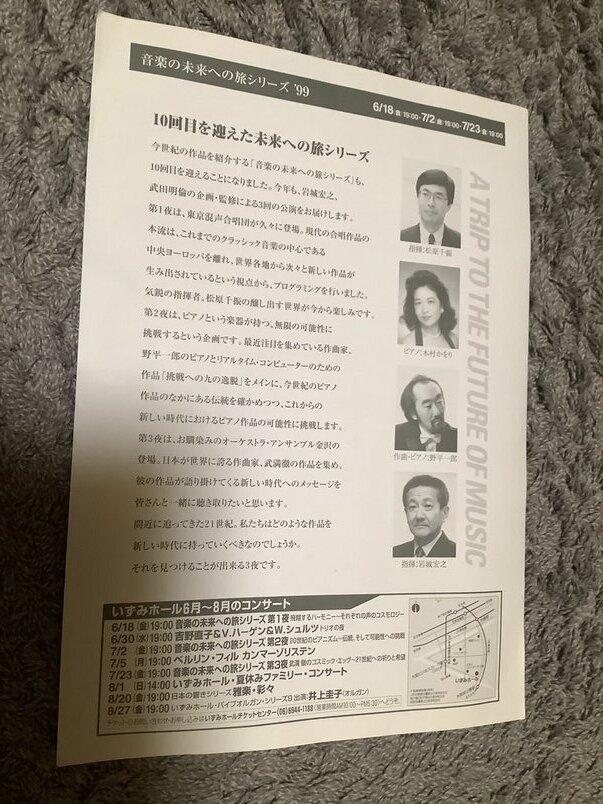 音楽の未来への旅シリーズ '99
6/18 金 19:00・7/2 金 19:00・7/23 金 19:00
10回目を迎えた未来への旅シリーズ
今世紀の作品を紹介する「音楽の未来への旅シリーズ」も、
10回目を迎えることになりました。今年も、岩城宏之、
武田明倫の企画・監修による3回の公演をお届けします。
第1夜は、東京混声合唱団が久々に登場。現代の合唱作品の
本流は、これまでのクラシック音楽の中心である
中央ヨーロッパを離れ、世界各地から次々と新しい作品が
生み出されているという視点から、プログラミングを行いました。
気鋭の指揮者、松原千振の醸し出す世界が今から楽しみです。
第2夜は、ピアノという楽器が持つ、無限の可能性に
挑戦するという企画です。最近注目を集めている作曲家、
野平一郎のピアノとリアルタイム・コンピューターのための
作品「挑戦への九の逸脱」をメインに、今世紀のピアノ
作品のなかにある伝統を確かめつつ、これからの
新しい時代におけるピアノ作品の可能性に挑戦します。
第3夜は、お馴染みのオーケストラ・アンサンブル金沢の
登場。日本が世界に誇る作曲家、武満徹の作品を集め、
彼の作品が語り掛けてくる新しい時代へのメッセージを
皆さんと一緒に聴き取りたいと思います。
間近に迫ってきた21世紀。私たちはどのような作品を
新しい時代に持っていくべきなのでしょうか。
それを見つけることが出来る3夜です。
指揮:松原千振
ピアノ:木村かをり
作曲・ピアノ:野平一郎
指揮:岩城宏之
A TRIP TO THE FUTURE OF MUSIC
いずみホール6月〜8月のコンサート
6/18 (金) 19:00 音楽の未来への旅シリーズ 第1夜 飛翔するハーモニー〜それぞれの声のコスモロジー
6/30 (水) 19:00 吉野直子&V.ハーゲン&W.シュルツ トリオの夜
7/2 (金) 19:00 音楽の未来への旅シリーズ 第2夜 20世紀のピアニズム〜伝統、そして可能性への挑戦
7/5 (月) 19:00 ベルリン・フィル カンマーゾリステン
7/23 (金) 19:00 音楽の未来への旅シリーズ 第3夜 武満 徹のコスミック・エッグ〜21世紀への祈りと希望
8/1 (日) 14:00 いずみホール・夏休みファミリー・コンサート
8/20 (金) 19:00 日本の響きシリーズ 雅楽・彩々
8/27 (金) 19:00 いずみホール・パイプオルガン・シリーズ9 出演:井上圭子(オルガン)
チケットのお問い合わせ・お申し込みはいずみホールチケットセンター(06)6944-1188(営業時間AM10:00〜PM5:30)へどうぞ。
いずみホール